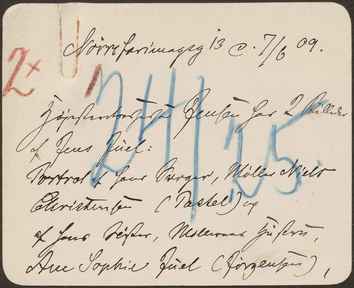 Nørrefarimagsg 13 C. 7/6 09.
2x
Jensen har 2 Billeder
af Jens Juel:
24/125.
Portræt af Hans Svoger, Møller Niels
Christensen (Pastel) og
af Hans Søster, Møllerens Hustru,
Ane Sophie Juel (Jørgensen),